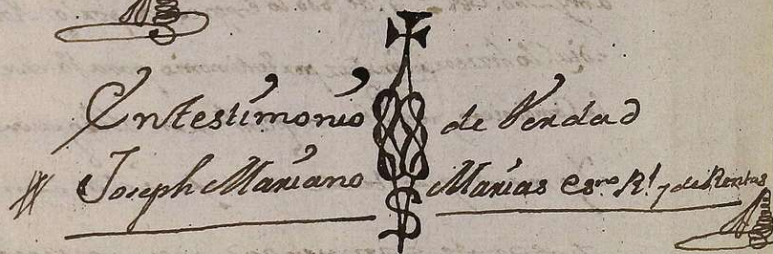 En testimonio de Verdad
Joseph Mariano Marias Esno Rl y de Rentas